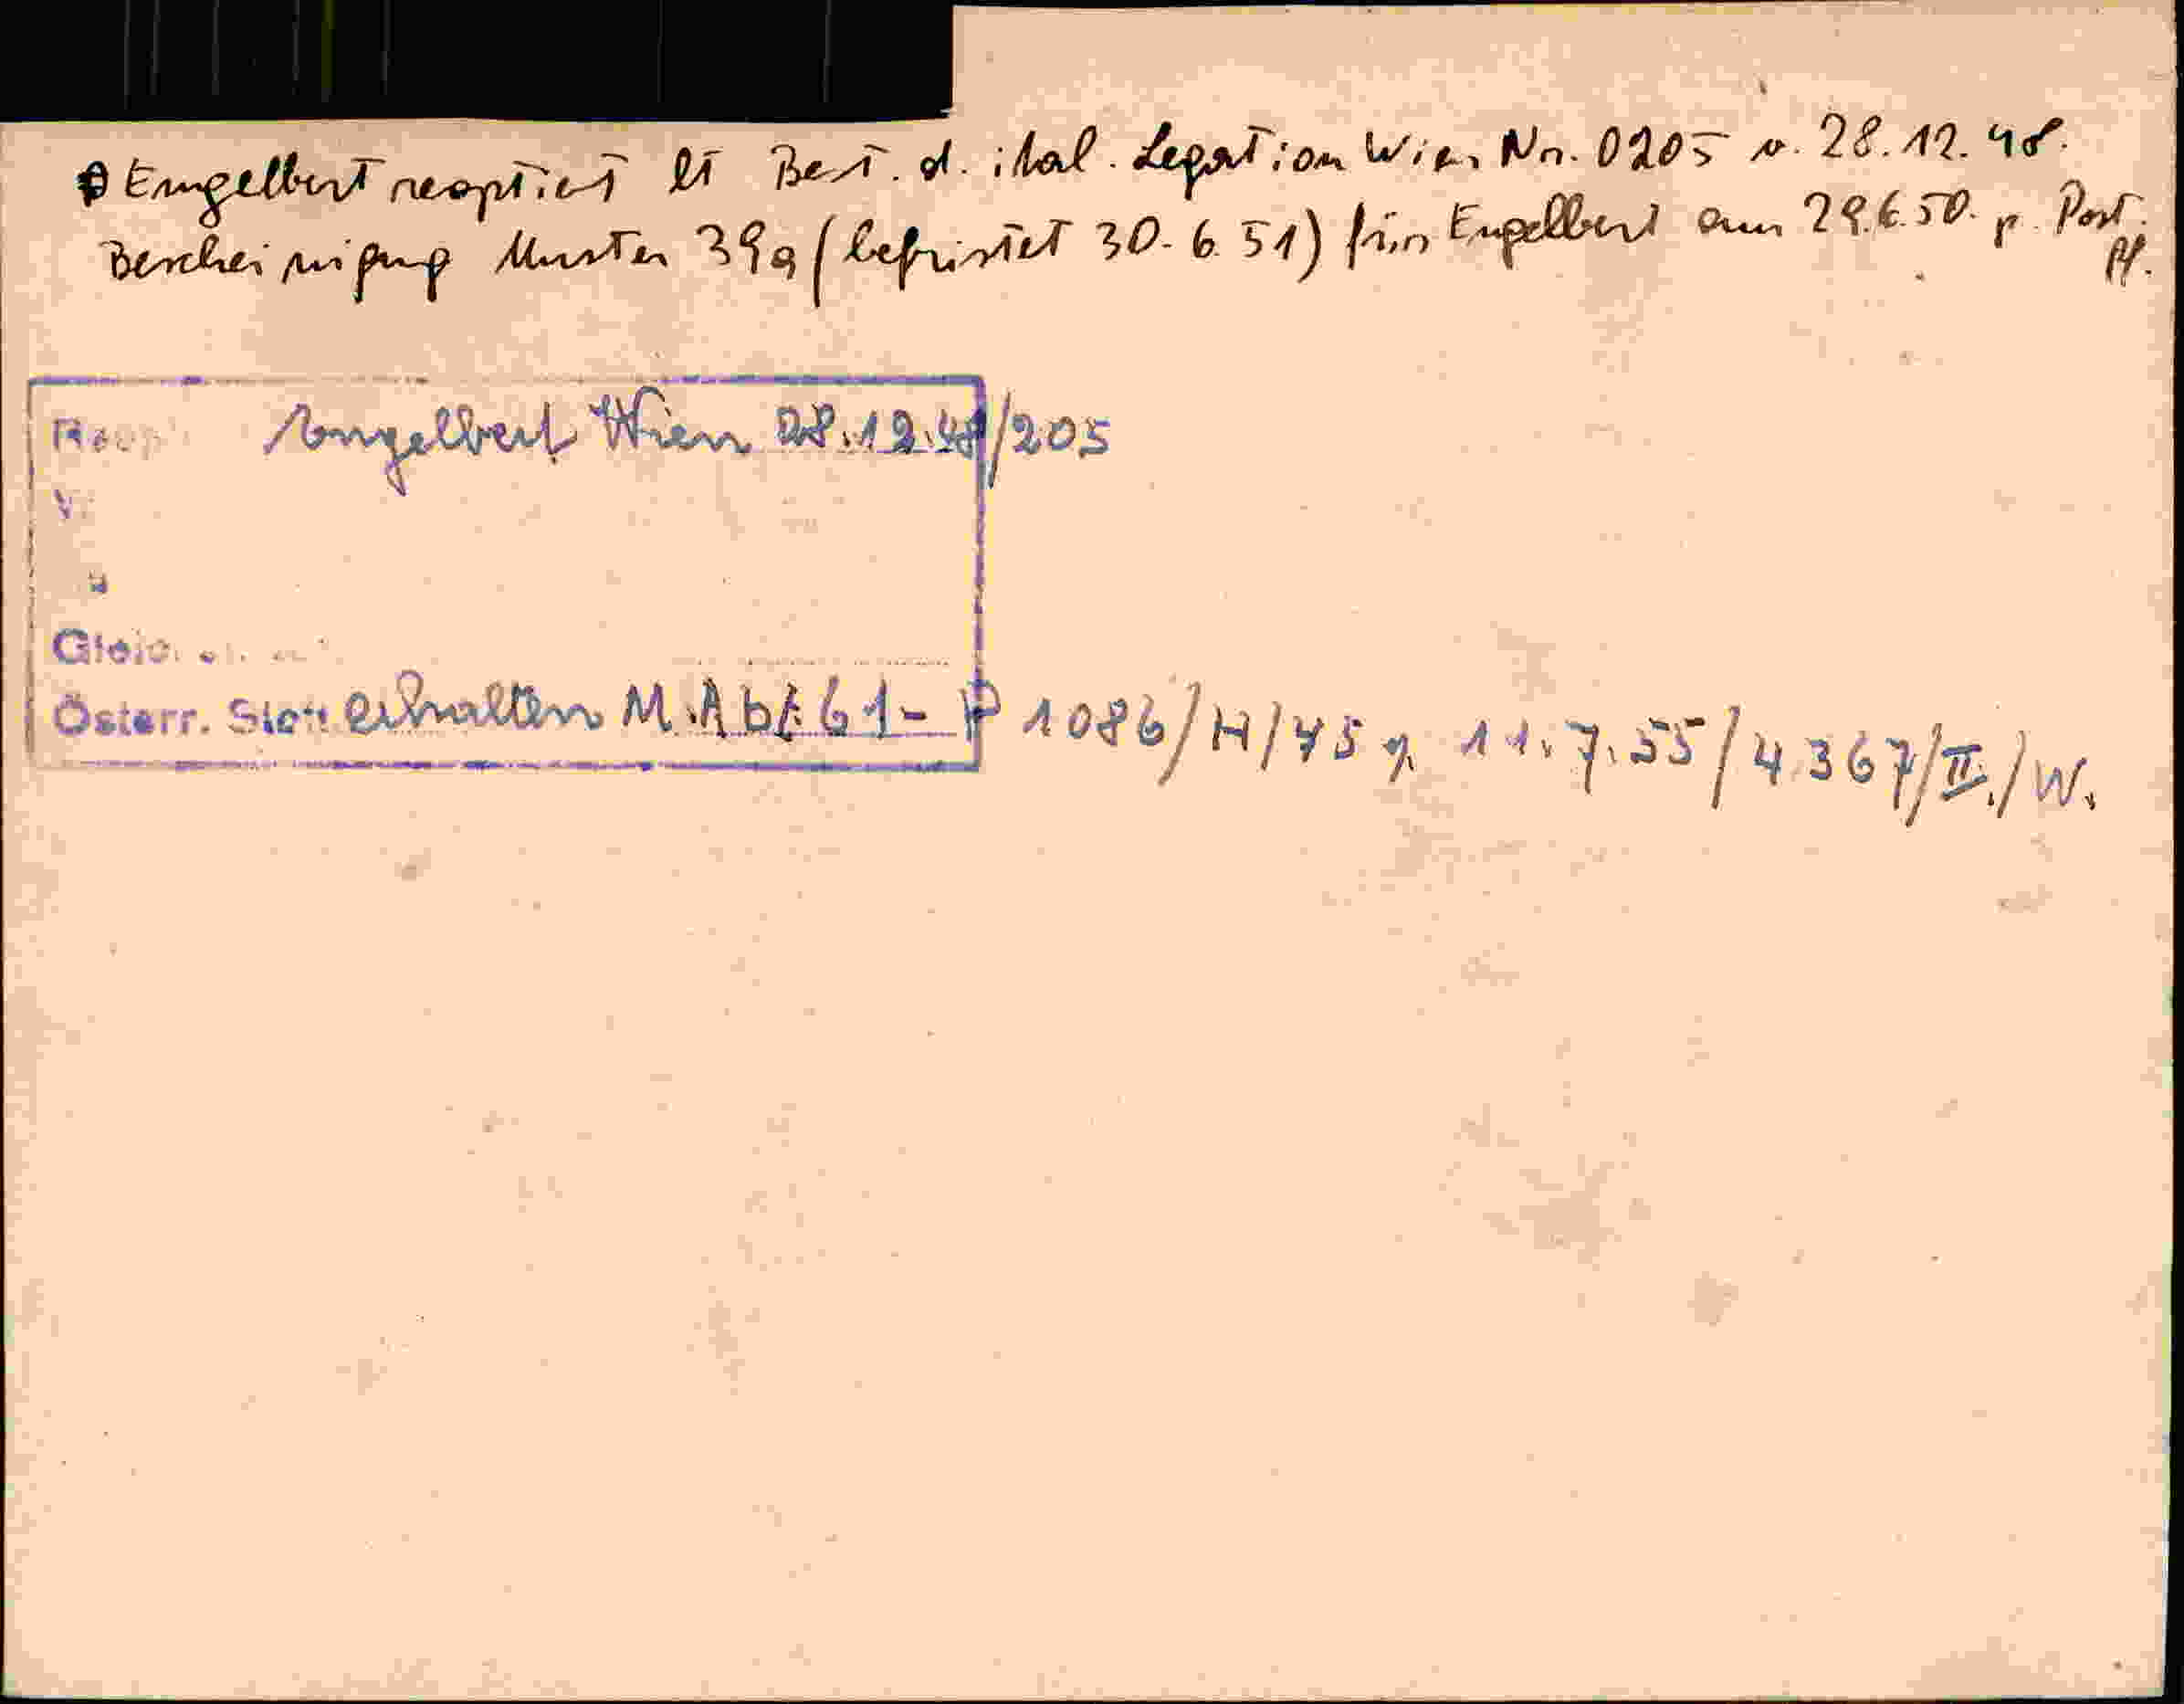 Engelbert reoptiert lt Best. d. ital. Legation Wien Nr. 0205 v. 28.12.48.
Bescheinigung Muster 39a (befristet 30.6.51) für Engelbert am 29.6.50. p. Post.
Pf.
Engelbert Wien 28.12.48/205
Österr. Staat. erhalten M.Abt. 61- P 1086/H/45 v. 11.7.55/4367/II./W.